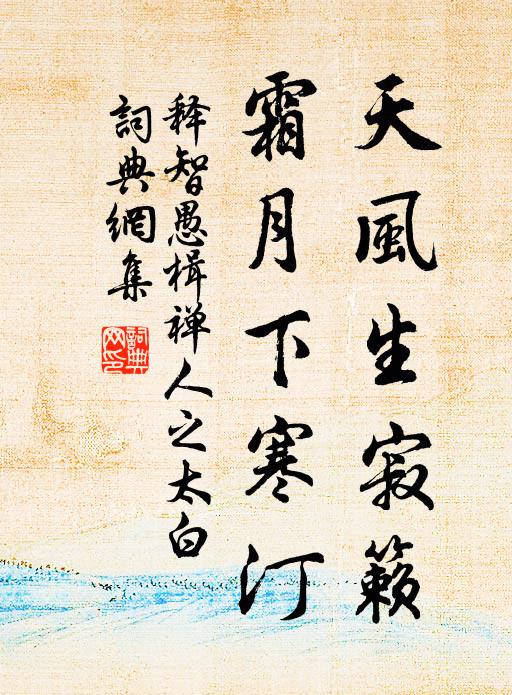 天風生寂籟
霜月下寒汀
释智愚楫禅人之太白
詞典網集
詞典網印